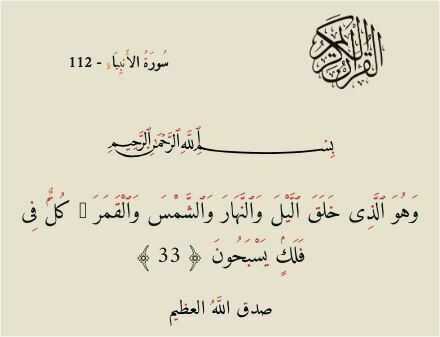 القرآن الكريم
سُورَةُ الأَنبِيَاءِ - 112
بِسْمِ اللَّهِ الرَّحْمَٰنِ الرَّحِيمِ
وَهُوَ ٱلَّذِى خَلَقَ ٱلَّيْلَ وَٱلنَّهَارَ وَٱلشَّمْسَ وَٱلْقَمَرَ ▯ كُلٌّ فِى
فَلَكٍ يَسْبَحُونَ ﴿ 33 ﴾
صدق اللَّهُ العظيم